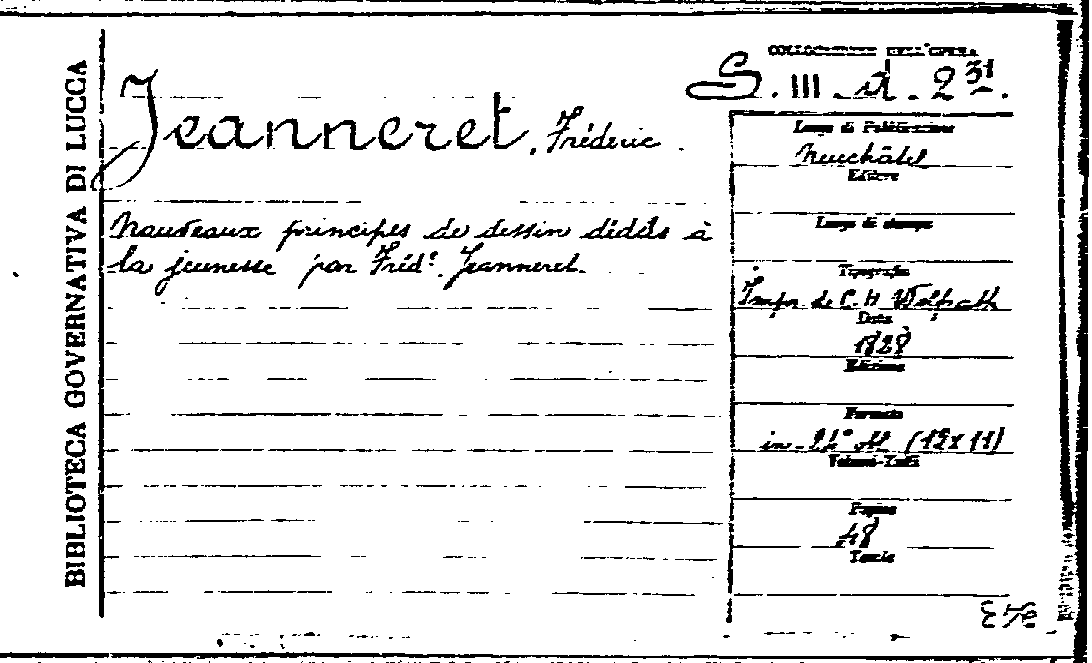 BIBLIOTECA GOVERNATIVA DI LUCCA
Jeanneret, Fréderic.
Nouveaux principes de dessin dédiés à
la jeunesse par Fréd.c Jeanneret.
COLLOCAZIONE DELL'OPERA
S. III. d. 2 31.
Luogo di Pubblicazione
Neuchâtel
Editore
Luogo di stampa
Tipografia
Impr de C. H. Wolfrath
Data
1828
Edizione
Formato
in-24° obl (12x11)
Volumi-Tomi
Pagine
48
Tavole